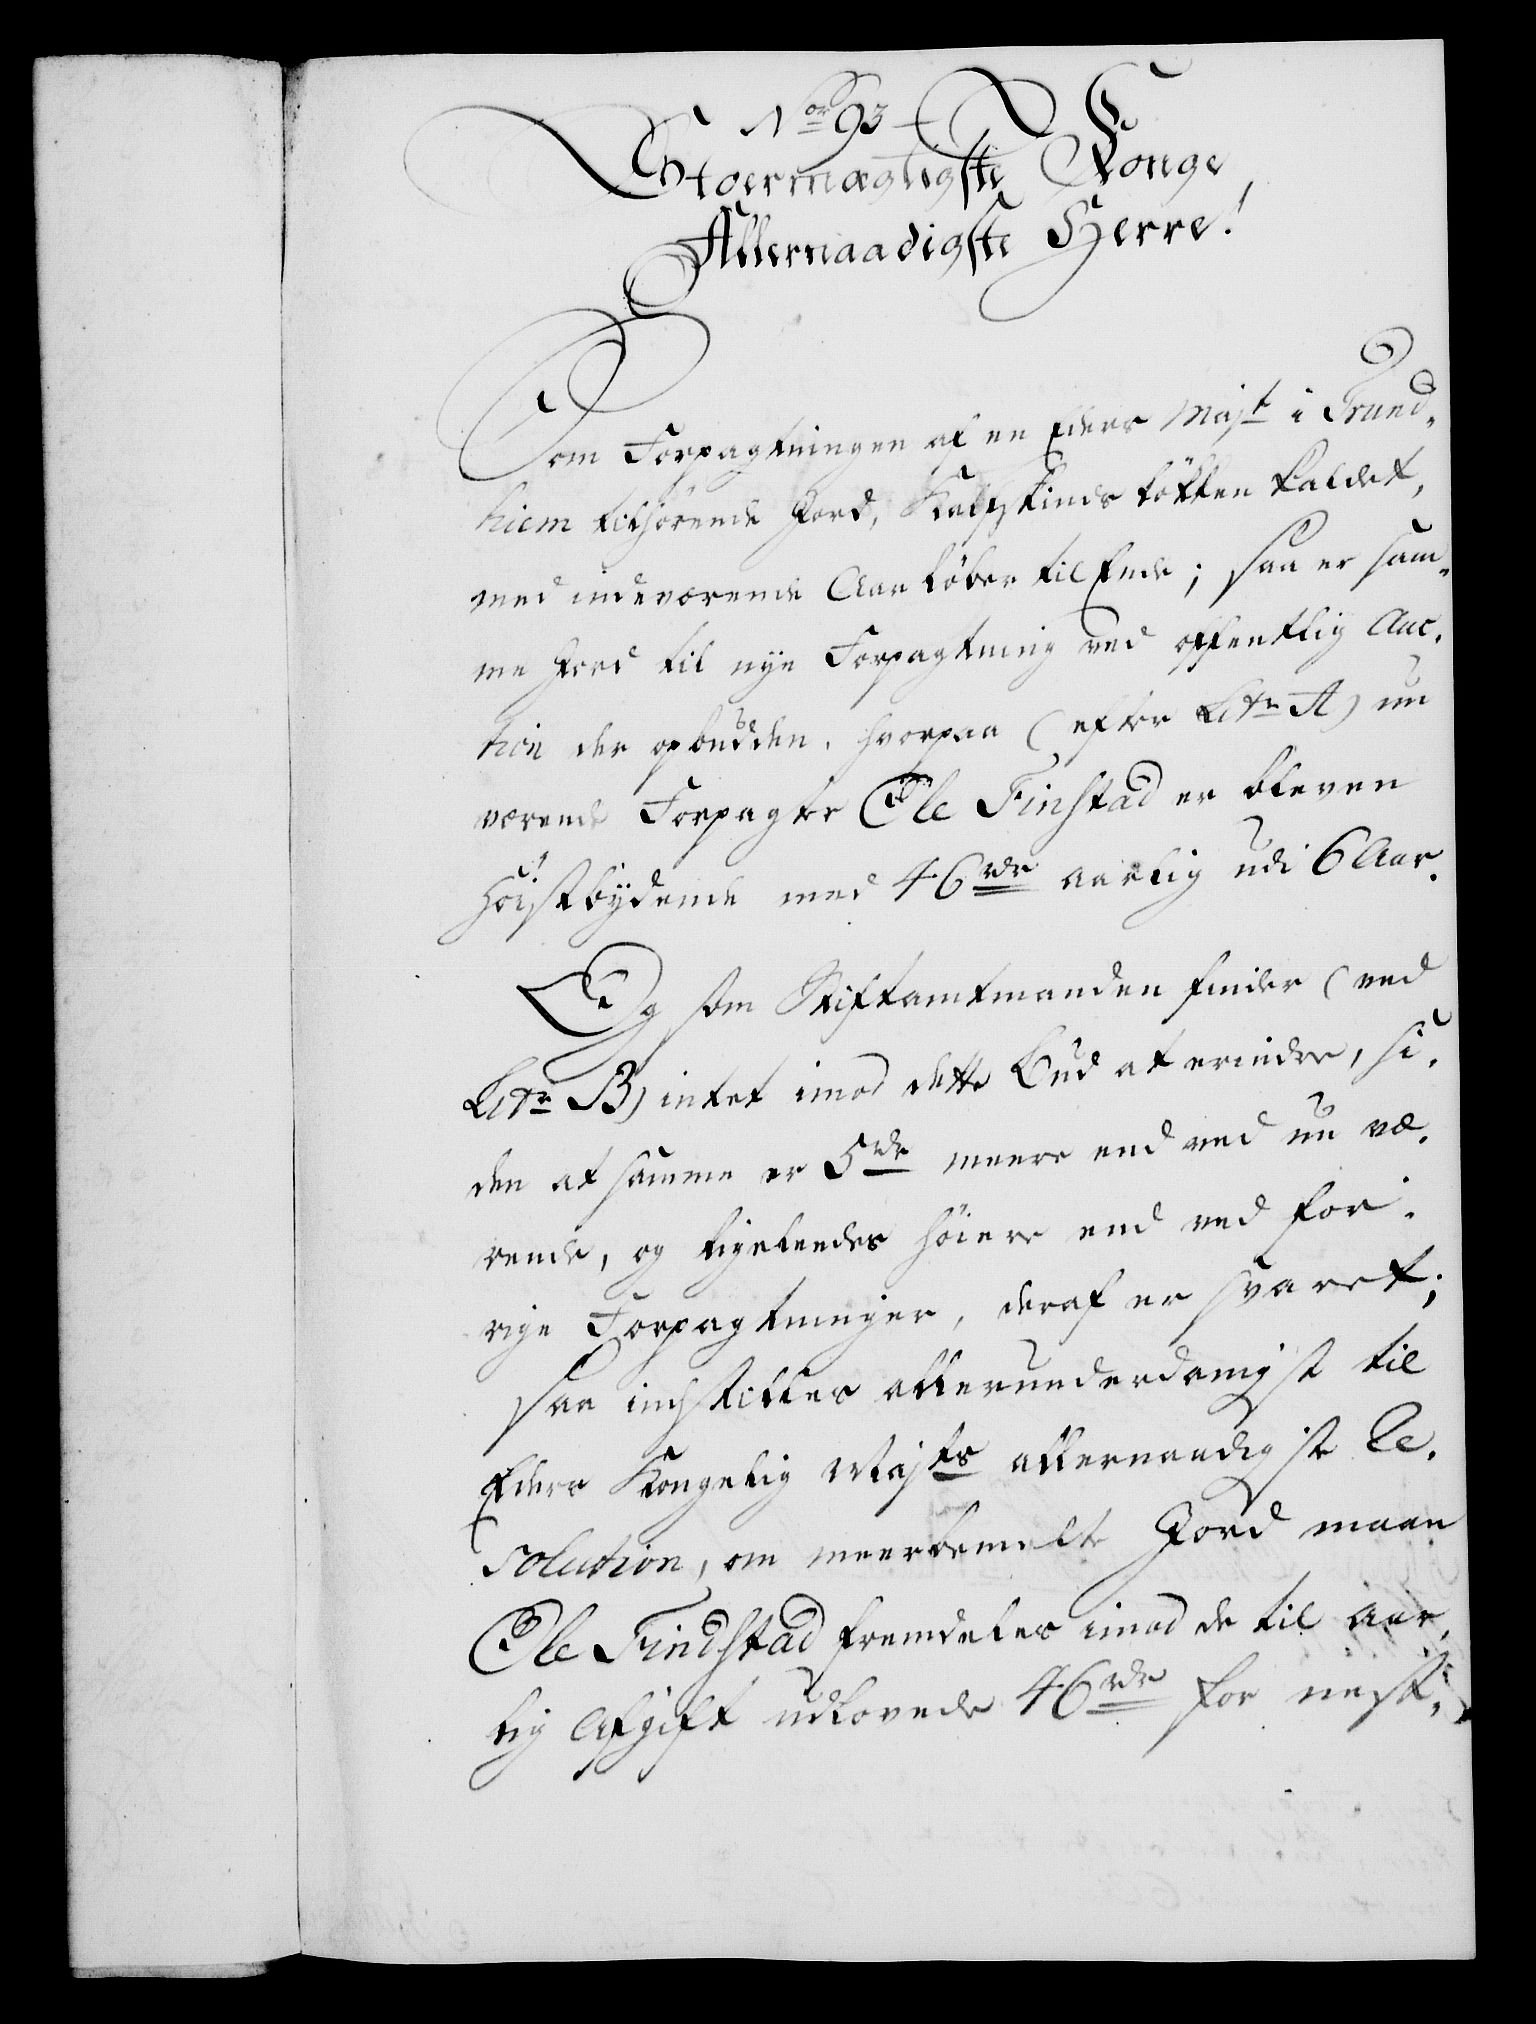 No 93
Stoermægtigste Konge
Allernaadigste Herre!
Som Forpagtningen af en Eders Majt i Trund-
hiem tilhørende Jord, Kalfskinds Løkken kaldet,
med indeværende Aar løber til Ende; saa er sam-
me Jord til nye Forpagtning ved offentlig Auc-
tion der opbudden, hvorpaa (efter Litr A) nu
værende Forpagter Ole Finstad er bleven
Høistbydende med 46 rdr aarlig udi 6 Aar.
Og som Stiftamtmanden finder (ved
Litr B) intet imod dette Bud at erindre, si-
den at samme er 5 rdr meere end ved nu væ-
rende, og ligeledes høiere end ved for-
rige Forpagtninger, deraf er svaret;
saa indstilles allerunderdanigst til
Eders Kongelig Majts allernaadigste Re-
solution, om meerbemelte Jord maae
Ole Findstad fremdeles imod de til aar-
lig Afgift udlovede 46 rdr for næst-